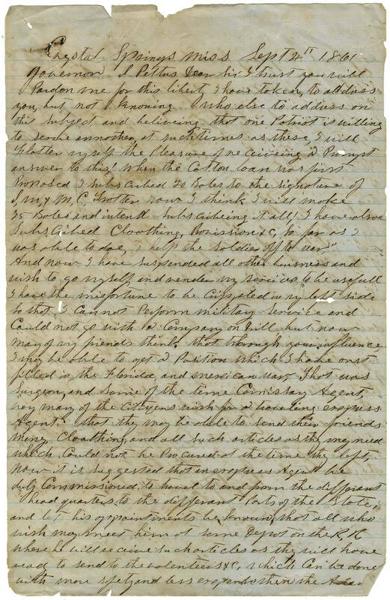 Crystal Springs Miss Sept 2nd 1861
Governor J Pettus Dear Sir I trust you will
Pardon me for this liberty I have taken, to address
you, but not Knowing who else to address on
this subject and believing that one Patriot is willing
to serve another at such times as these, I will
flatter myself the Pleasure of receiveing a Prompt
answer to this. When the Cotton loan was first
imposed I subscribed 20 Bales to the signature of
J M C Trotter now I think I will make
35 Bales and intend subscribeing it all, I have also
subscribed Cloothing, Provisions &c, so far as I
was able to do, to help the soldiers off to war
And now I have suspended all other business and
wish to go myself and render my services to be usefull
I have the misfortune to be Crippled in my left side
so that I Cannot Perform military service and
Could not go with a Company or will, but now
many of my friends think that through your influence
I may be able to get a Position which I have once
filled in the Florida and mexican war. That was
Surgeon, and some of the time Comissary Agent,
very many of the Citizens wish for a traveling express
Agent that they may be able to send their friends
money Cloathing and all such articles as they may need
which Could not be Procured at the time they left,
now it is suggested that an express Agent be
duly Commissioned to travel to and from the different
Head quarters to the different Parts of the State
and let his appointments be Known, that all who
wish may meet him at some Depot on the R R
where he will receive such articles as they will have
ready to send to the volenteers &c, which Can be done
with more safety and less expense then the